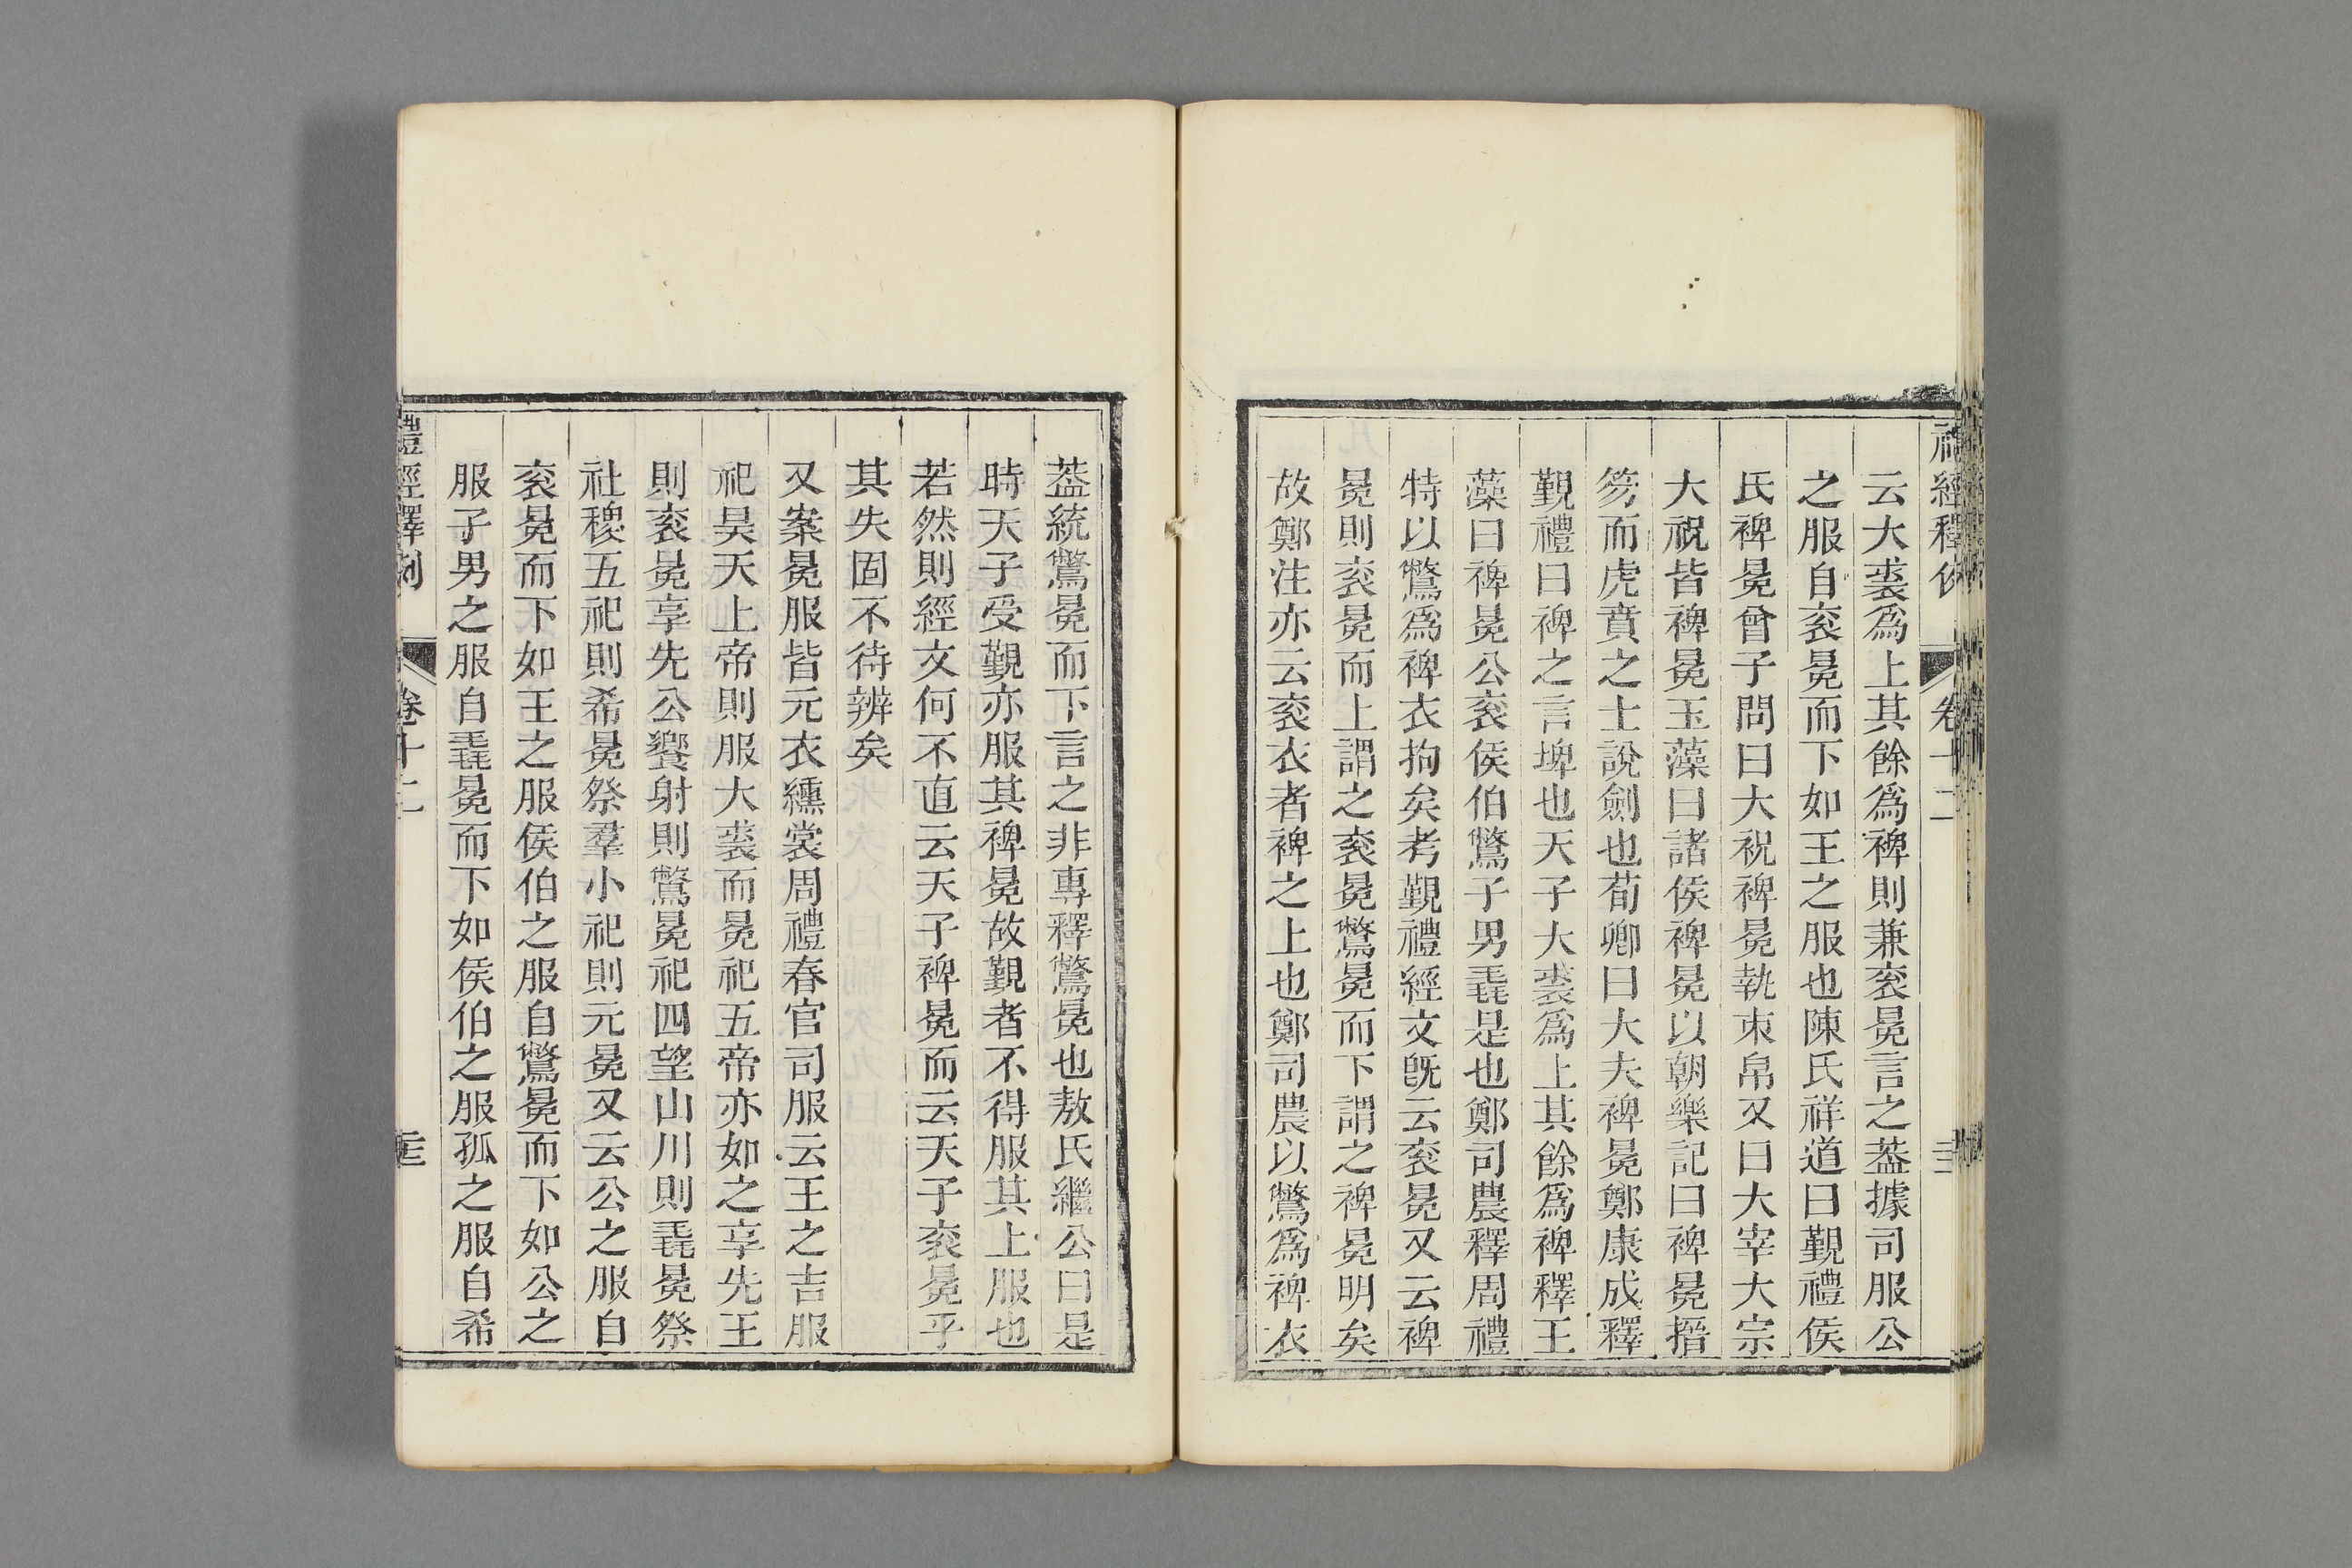 云大裘爲上其餘爲裨則兼衮冕言之葢據司服公
之服自衮冕而下如王之服也陳氏祥道曰覲禮侯
氏裨冕曾子問曰大祝裨冕執束帛又曰大宰大宗
大祝皆裨冕玉藻曰諸侯裨冕以朝樂記曰裨冕搢
笏而虎賁之士說劍也荀卿曰大夫裨冕鄭康成釋
覲禮曰裨之言埤也天子大裘爲上其餘爲裨釋玉
藻曰裨冕公衮侯伯鷩子男毳是也鄭司農釋周禮
特以鷩爲裨衣拘矣考覲禮經文旣云衮冕又云裨
冕則衮冕而上謂之衮冕鷩冕而下謂之裨冕明矣
故鄭注亦云衮衣者裨之上也鄭司農以鷩爲裨衣
葢統鷩冕而下言之非專釋鷩冕也敖氏繼公曰是
時天子受覲亦服其裨冕故覲者不得服其上服也
若然則經文何不直云天子裨冕而云天子衮冕乎
其失固不待辨矣
又案冕服皆元衣纁裳周禮春官司服云王之吉服
祀昊天上帝則服大裘而冕祀五帝亦如之享先王
則衮冕享先公饗射則鷩冕祀四望山川則毳冕祭
社稷五祀則希冕祭羣小祀則元冕又云公之服自
衮冕而下如王之服侯伯之服自鷩冕而下如公之
服子男之服自毳冕而下如侯伯之服孤之服自希
禮經釋例 卷十二